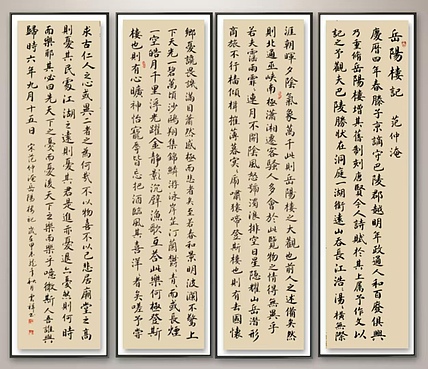 岳陽樓記 范仲淹
慶曆四年春滕子京謫守巴陵郡越明年政通人和百廢俱興
乃重脩岳陽樓增其舊制刻唐賢今人詩賦於其上屬予作文以
記之予觀夫巴陵勝狀在洞庭一湖銜遠山吞長江浩浩湯湯橫無際
涯朝暉夕陰氣象萬千此則岳陽樓之大觀也前人之述備矣然
則北通巫峽南極瀟湘遷客騷人多會於此覽物之情得無異乎
若夫霪雨霏霏連月不開陰風怒號濁浪排空日星隱耀山岳潛形
商旅不行檣傾楫摧薄暮冥冥虎嘯猿啼登斯樓也則有去國懷
鄉憂讒畏譏滿目蕭然感極而悲者矣至若春和景明波瀾不驚上
下天光一碧萬頃沙鷗翔集錦鱗游泳岸芷汀蘭郁郁青青而或長煙
一空皓月千里浮光躍金靜影沉璧漁歌互答此樂何極登斯
樓也則有心曠神怡寵辱皆忘把酒臨風其喜洋洋者矣嗟夫予嘗
求古仁人之心或異二者之為何哉不以物喜不以己悲居廟堂之高
則憂其民處江湖之遠則憂其君是進亦憂退亦憂然則何時
而樂耶其必曰先天下之憂而憂後天下之樂而樂乎噫微斯人吾誰與
歸時六年九月十五日 宋范仲淹岳陽樓記